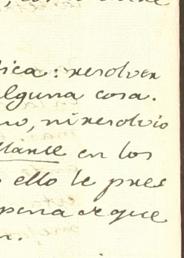 tica: resolver
alguna cosa.
no, ni resolvio
llarse en los
ello le pres
pena de que
n.